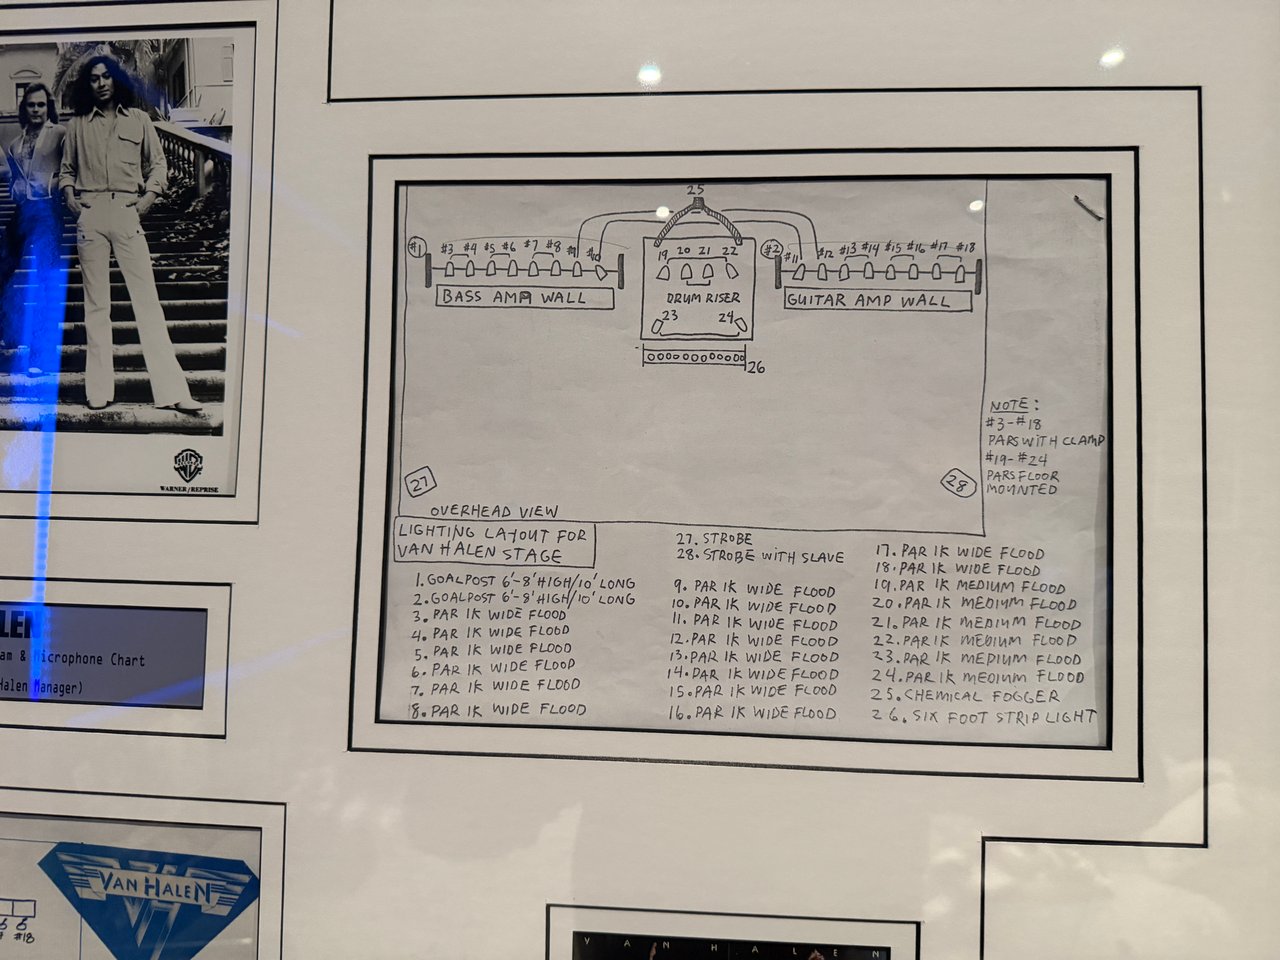 WB
WARNER/REPRISE
LEN
am & Microphone Chart
Halen Manager)
VAN HALEN
6 6
#18
25
#1 #3 #4 #5 #6 #7 #8 #9 #10
19 20 21 22
#2 #11 #12 #13 #14 #15 #16 #17 #18
BASS AMP WALL
DRUM RISER
GUITAR AMP WALL
23 24
26
NOTE:
#3-#18
PARS WITH CLAMP
#19-#24
PARS FLOOR
MOUNTED
27
28
OVERHEAD VIEW
LIGHTING LAYOUT FOR
VAN HALEN STAGE
1. GOALPOST 6'-8' HIGH/10' LONG
2. GOALPOST 6'-8' HIGH/10' LONG
3. PAR 1K WIDE FLOOD
4. PAR 1K WIDE FLOOD
5. PAR 1K WIDE FLOOD
6. PAR 1K WIDE FLOOD
7. PAR 1K WIDE FLOOD
8. PAR 1K WIDE FLOOD
27. STROBE
28. STROBE WITH SLAVE
9. PAR 1K WIDE FLOOD
10. PAR 1K WIDE FLOOD
11. PAR 1K WIDE FLOOD
12. PAR 1K WIDE FLOOD
13. PAR 1K WIDE FLOOD
14. PAR 1K WIDE FLOOD
15. PAR 1K WIDE FLOOD
16. PAR 1K WIDE FLOOD
17. PAR 1K WIDE FLOOD
18. PAR 1K WIDE FLOOD
19. PAR 1K MEDIUM FLOOD
20. PAR 1K MEDIUM FLOOD
21. PAR 1K MEDIUM FLOOD
22. PAR 1K MEDIUM FLOOD
23. PAR 1K MEDIUM FLOOD
24. PAR 1K MEDIUM FLOOD
25. CHEMICAL FOGGER
26. SIX FOOT STRIP LIGHT
VAN HALEN